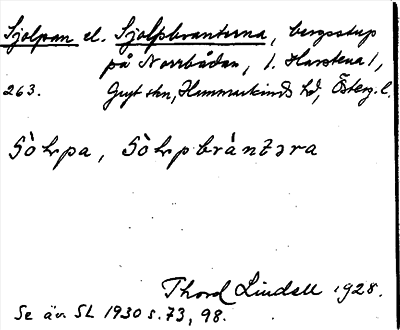 Sjolpan el. Sjolpbranterna, bergsstup
på Norrbådan, (. Harstena),
263. Gryt skn, Hammarkinds hd, Österg. l.
Söɬpa, Söɬpbräntəra
Thord Lindell 1928.
Se äv. SL 1930 s. 73, 98.